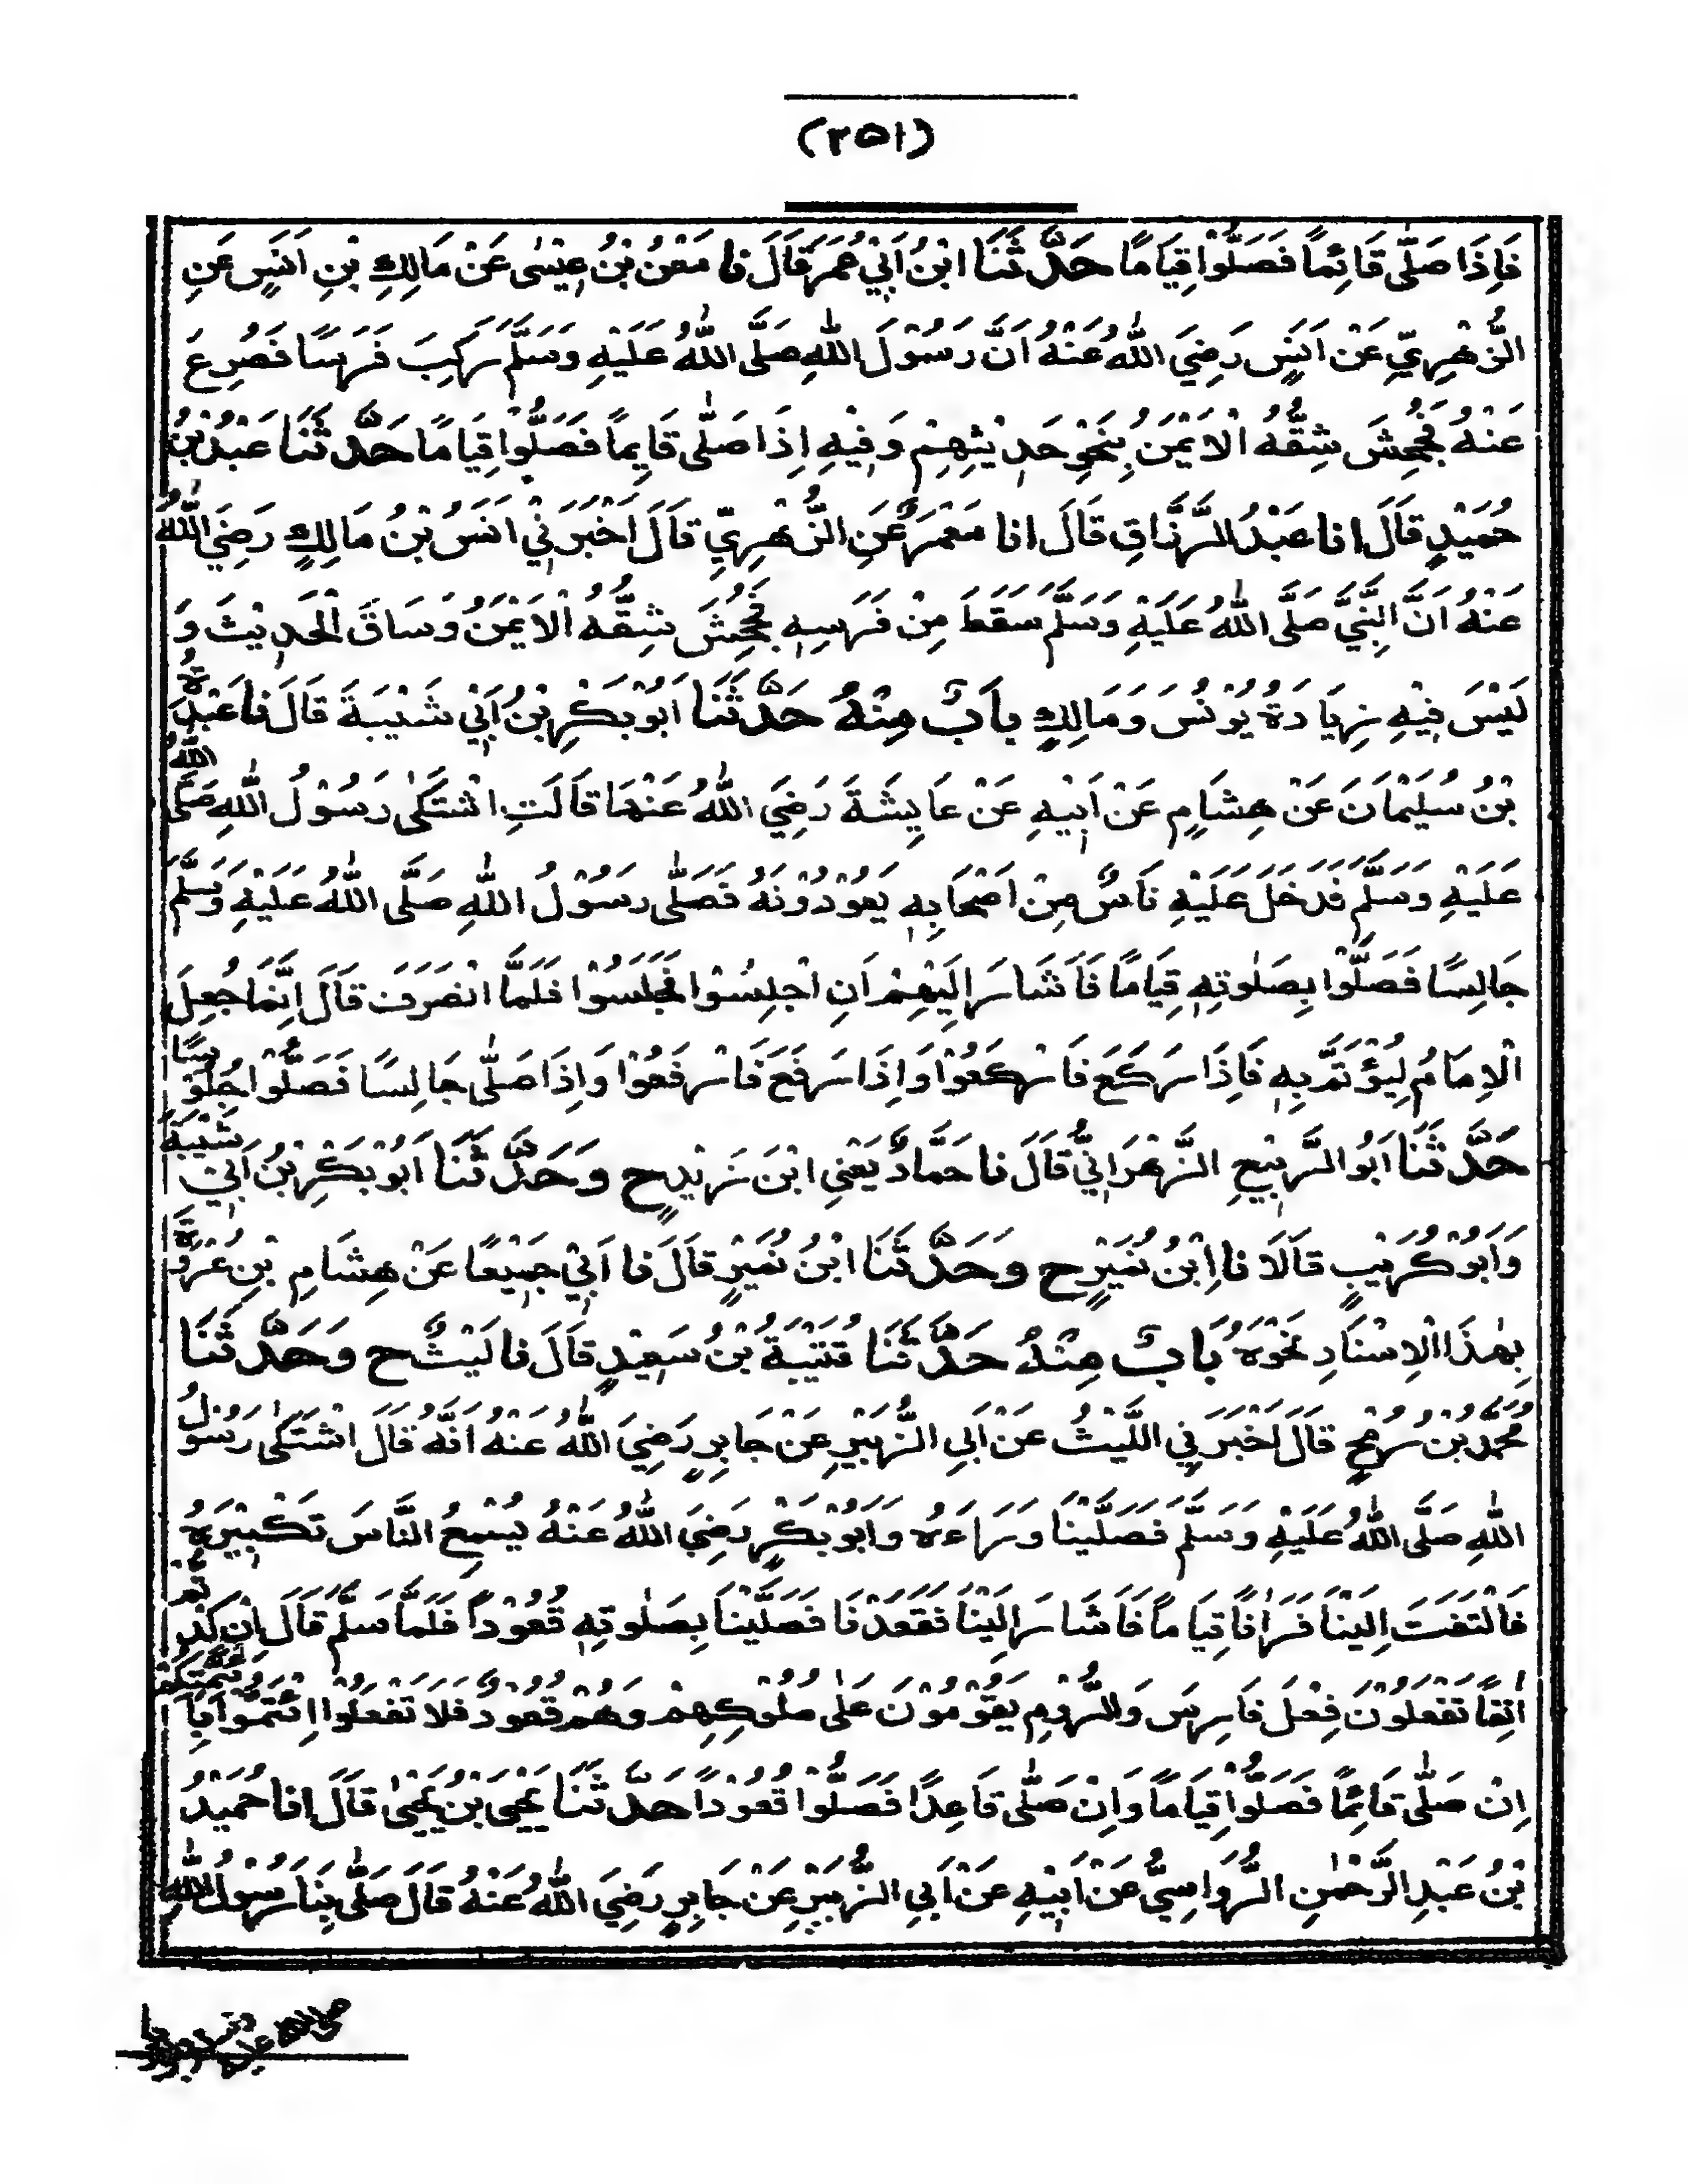 (٢٥١)
فَإِذَا صَلّٰى قَائِمًا فَصَلُّوْا قِيَامًا حَدَّثَنَا ابْنُ اَبِيْ عُمَرَ قَالَ نا مَعْنُ بْنُ عِيْسٰى عَنْ مَالِكِ بْنِ اَنَسٍ عَنِ
الزُّهْرِيِّ عَنْ اَنَسٍ رَضِيَ اللّٰهُ عَنْهُ اَنَّ رَسُوْلَ اللّٰهِ صَلَّى اللّٰهُ عَلَيْهِ وَسَلَّمَ رَكِبَ فَرَسًا فَصُرِعَ
عَنْهُ فَجُحِشَ شِقُّهُ الْاَيْمَنُ بِنَحْوِ حَدِيْثِهِمْ وَفِيْهِ اِذَا صَلّٰى قَايِمًا فَصَلُّوْا قِيَامًا حَدَّثَنَا عَبْدُ بْنُ
حُمَيْدٍ قَالَ انا عَبْدُ الرَّزَّاقِ قَالَ انا مَعْمَرٌ عَنِ الزُّهْرِيِّ قَالَ اَخْبَرَنِيْ اَنَسُ بْنُ مَالِكٍ رَضِيَ اللّٰهُ
عَنْهُ اَنَّ النَّبِيَّ صَلَّى اللّٰهُ عَلَيْهِ وَسَلَّمَ سَقَطَ مِنْ فَرَسِهٖ فَجُحِشَ شِقُّهُ الْاَيْمَنُ وَسَاقَ الْحَدِيْثَ وَ
لَيْسَ فِيْهِ زِيَادَةُ يُوْنُسَ وَمَالِكٍ بَابٌ مِنْهُ حَدَّثَنَا اَبُوْ بَكْرِ بْنُ اَبِيْ شَيْبَةَ قَالَ نا عَبْدَةُ
بْنُ سُلَيْمَانَ عَنْ هِشَامٍ عَنْ اَبِيْهِ عَنْ عَايِشَةَ رَضِيَ اللّٰهُ عَنْهَا قَالَتِ اشْتَكٰى رَسُوْلُ اللّٰهِ صَلَّى اللّٰهُ
عَلَيْهِ وَسَلَّمَ فَدَخَلَ عَلَيْهِ نَاسٌ مِنْ اَصْحَابِهٖ يَعُوْدُوْنَهُ فَصَلّٰى رَسُوْلُ اللّٰهِ صَلَّى اللّٰهُ عَلَيْهِ وَسَلَّمَ
جَالِسًا فَصَلَّوْا بِصَلٰوتِهٖ قِيَامًا فَاَشَارَ اِلَيْهِمْ اَنِ اجْلِسُوْا فَجَلَسُوْا فَلَمَّا انْصَرَفَ قَالَ اِنَّمَا جُعِلَ
الْاِمَامُ لِيُؤْتَمَّ بِهٖ فَاِذَا رَكَعَ فَارْكَعُوْا وَاِذَا رَفَعَ فَارْفَعُوْا وَاِذَا صَلّٰى جَالِسًا فَصَلُّوْا جُلُوْسًا
حَدَّثَنَا اَبُو الرَّبِيْعِ الزَّهْرَانِيُّ قَالَ نا حَمَّادٌ يَعْنِي ابْنَ زَيْدٍ ح وَحَدَّثَنَا اَبُوْ بَكْرِ بْنُ اَبِيْ شَيْبَةَ
وَاَبُوْ كُرَيْبٍ قَالَا نا ابْنُ نُمَيْرٍ ح وَحَدَّثَنَا ابْنُ نُمَيْرٍ قَالَ نا اَبِيْ جَمِيْعًا عَنْ هِشَامِ بْنِ عُرْوَةَ
بِهٰذَا الْاِسْنَادِ نَحْوَهُ بَابٌ مِنْهُ حَدَّثَنَا قُتَيْبَةُ بْنُ سَعِيْدٍ قَالَ نا لَيْثٌ ح وَحَدَّثَنَا
مُحَمَّدُ بْنُ رُمْحٍ قَالَ اَخْبَرَنِي اللَّيْثُ عَنْ اَبِي الزُّبَيْرِ عَنْ جَابِرٍ رَضِيَ اللّٰهُ عَنْهُ اَنَّهُ قَالَ اشْتَكٰى رَسُوْلُ
اللّٰهِ صَلَّى اللّٰهُ عَلَيْهِ وَسَلَّمَ فَصَلَّيْنَا وَرَاءَهُ وَاَبُوْ بَكْرٍ رَضِيَ اللّٰهُ عَنْهُ يُسْمِعُ النَّاسَ تَكْبِيْرَهُ
فَالْتَفَتَ اِلَيْنَا فَرَاٰنَا قِيَامًا فَاَشَارَ اِلَيْنَا فَقَعَدْنَا فَصَلَّيْنَا بِصَلٰوتِهٖ قُعُوْدًا فَلَمَّا سَلَّمَ قَالَ اِنْ كِدْتُمْ
اٰنِفًا تَفْعَلُوْنَ فِعْلَ فَارِسَ وَالرُّوْمِ يَقُوْمُوْنَ عَلٰى مُلُوْكِهِمْ وَهُمْ قُعُوْدٌ فَلَا تَفْعَلُوْا ائْتَمُّوْا بِاَئِمَّتِكُمْ
اِنْ صَلّٰى قَائِمًا فَصَلُّوْا قِيَامًا وَاِنْ صَلّٰى قَاعِدًا فَصَلُّوْا قُعُوْدًا حَدَّثَنَا يَحْيَى بْنُ يَحْيٰى قَالَ انا حُمَيْدُ
بْنُ عَبْدِ الرَّحْمٰنِ الرُّوَاسِيُّ عَنْ اَبِيْهِ عَنْ اَبِي الزُّبَيْرِ عَنْ جَابِرٍ رَضِيَ اللّٰهُ عَنْهُ قَالَ صَلّٰى بِنَا رَسُوْلُ اللّٰهِ